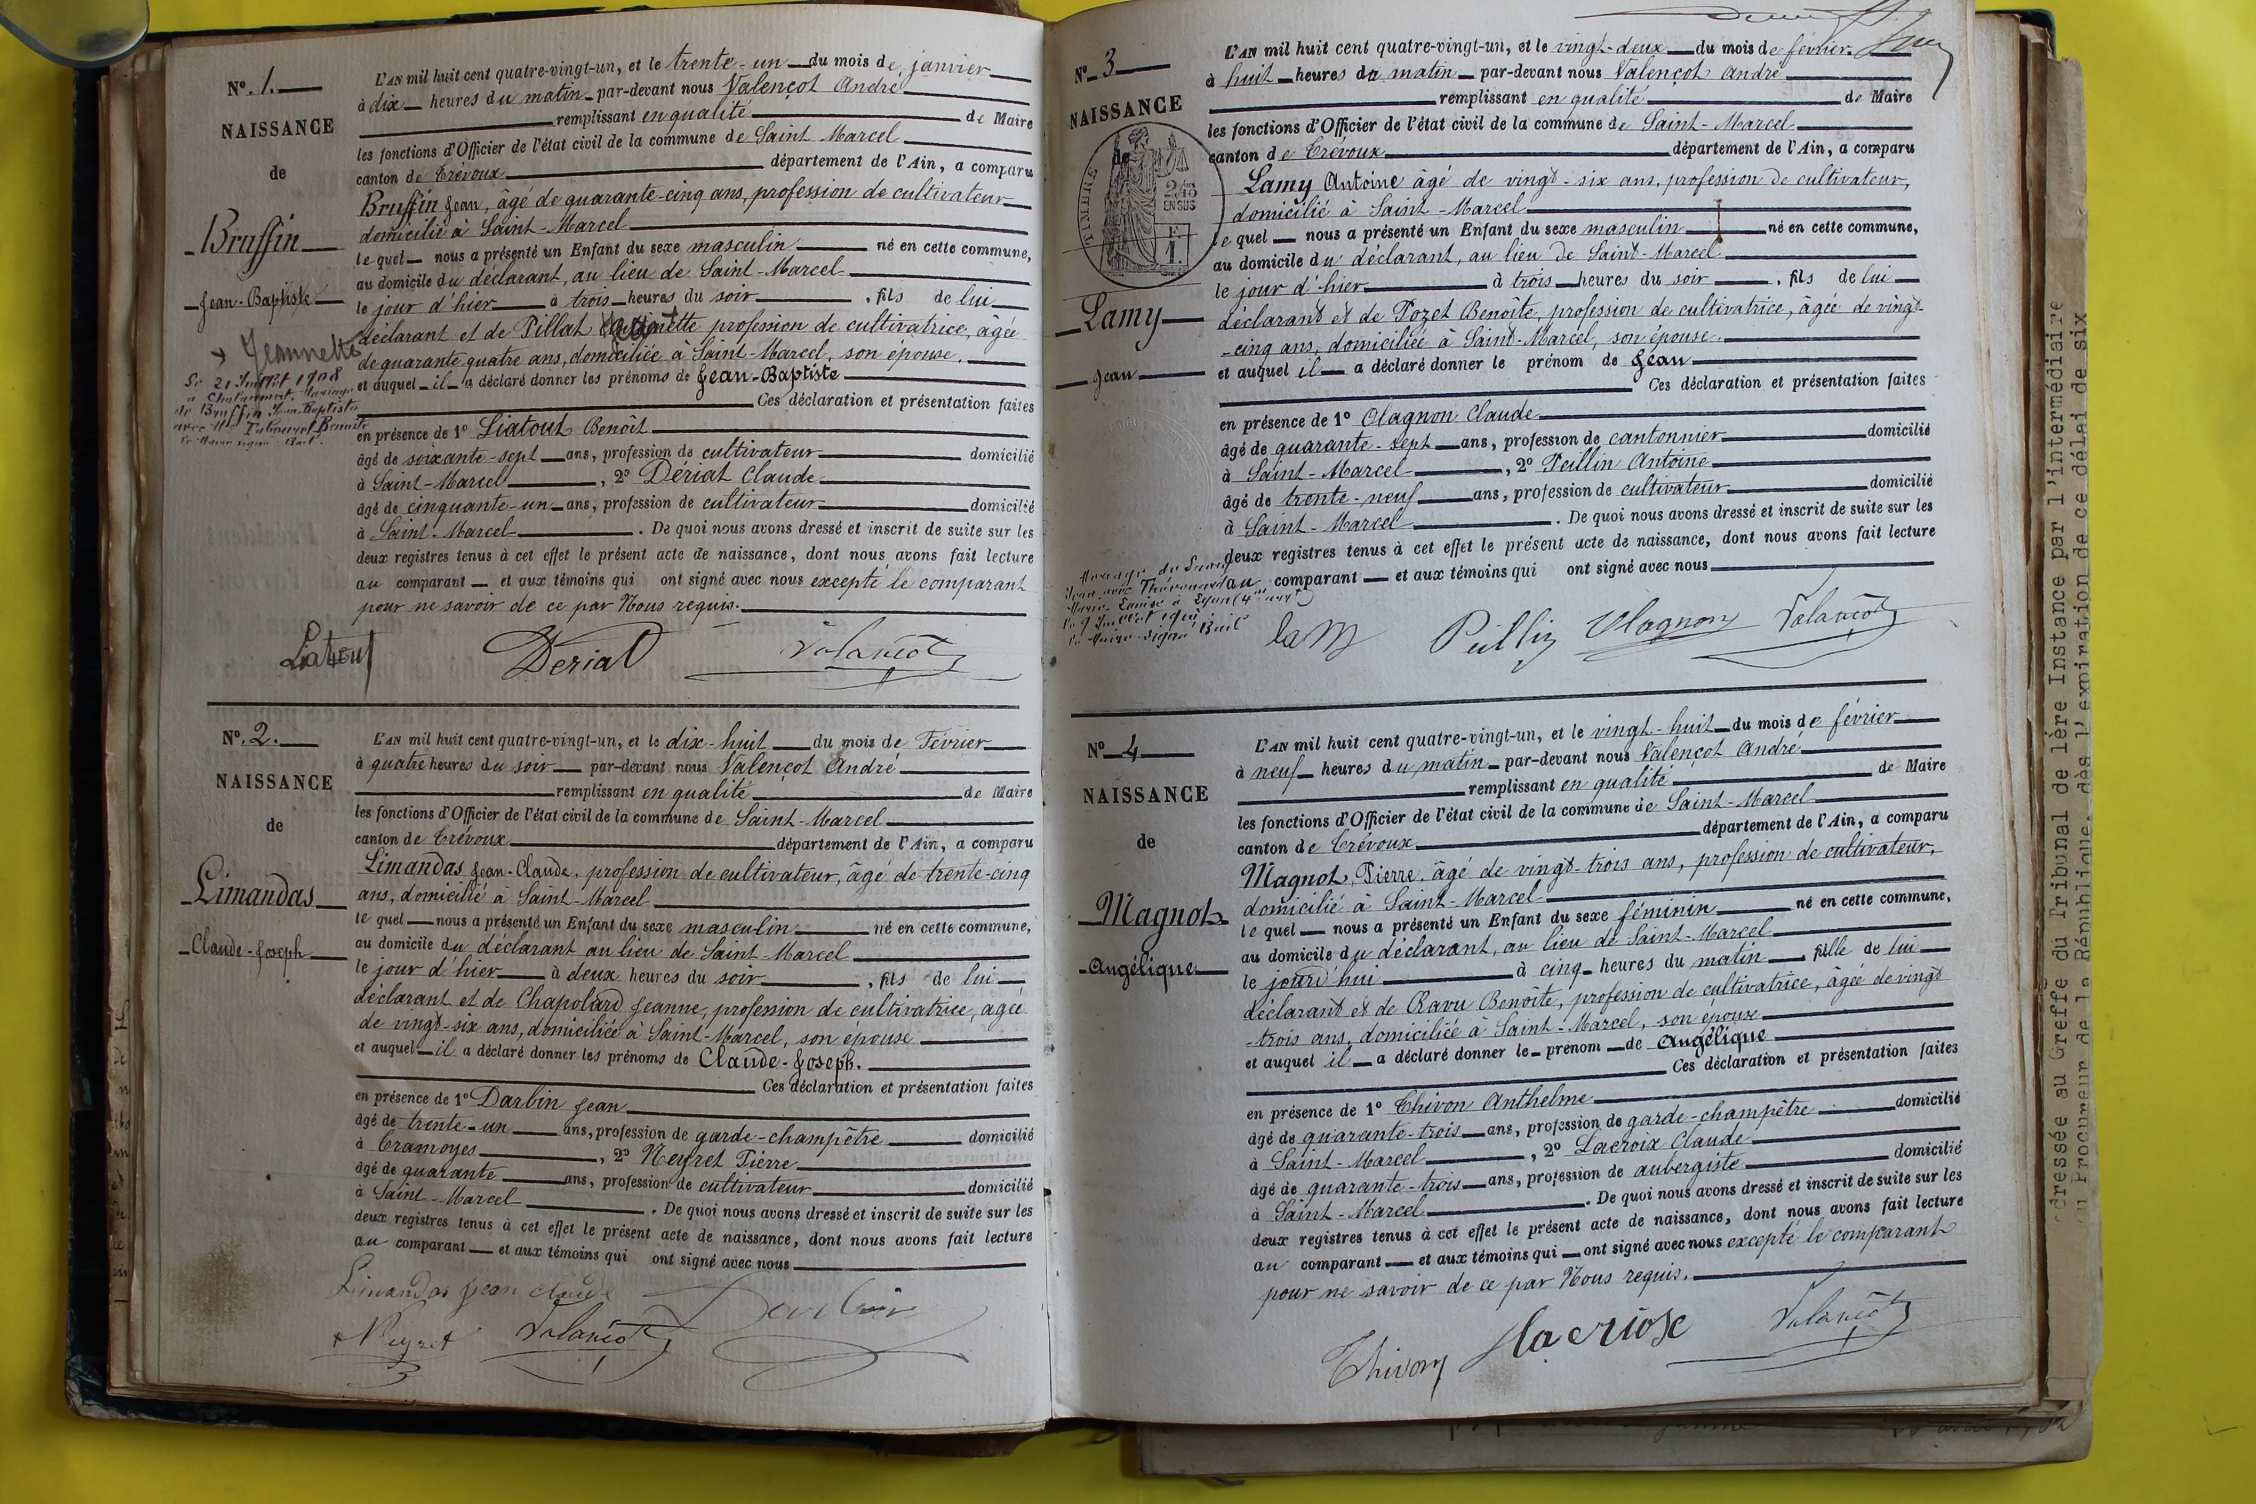 N°. 1.
NAISSANCE
de
Bruffin
Jean-Baptiste
Jeannette
Le 21 Juillet 1908
à mariage
de Bruffin Jean Baptiste
avec Benoite
Le Maire signé Bail.
L'AN mil huit cent quatre-vingt-un, et le trente-un du mois de janvier
à dix heures du matin par-devant nous Valençot André
remplissant en qualité de Maire
les fonctions d'Officier de l'état civil de la commune de Saint-Marcel
canton de Trévoux département de l'Ain, a comparu
Bruffin Jean, âgé de quarante-cinq ans, profession de cultivateur
domicilié à Saint-Marcel
le quel nous a présenté un Enfant du sexe masculin né en cette commune,
au domicile du déclarant, au lieu de Saint-Marcel
le jour d'hier à trois heures du soir, fils de lui
déclarant et de Pillat profession de cultivatrice, âgée
de quarante quatre ans, domiciliée à Saint-Marcel, son épouse,
et auquel il a déclaré donner les prénoms de Jean-Baptiste
Ces déclaration et présentation faites
en présence de 1° Liatout Benoît
âgé de soixante-sept ans, profession de cultivateur domicilié
à Saint-Marcel, 2° Dériat Claude
âgé de cinquante-un ans, profession de cultivateur domicilié
à Saint-Marcel. De quoi nous avons dressé et inscrit de suite sur les
deux registres tenus à cet effet le présent acte de naissance, dont nous avons fait lecture
au comparant et aux témoins qui ont signé avec nous excepté le comparant
pour ne savoir de ce par Nous requis.
Liatout Deriat Valançot
N°. 2.
NAISSANCE
de
Limandas
Claude-Joseph
L'AN mil huit cent quatre-vingt-un, et le dix-huit du mois de Février
à quatre heures du soir par-devant nous Valençot André
remplissant en qualité de Maire
les fonctions d'Officier de l'état civil de la commune de Saint-Marcel
canton de Trévoux département de l'Ain, a comparu
Limandas Jean-Claude, profession de cultivateur, âgé de trente-cinq
ans, domicilié à Saint-Marcel
le quel nous a présenté un Enfant du sexe masculin né en cette commune,
au domicile du déclarant au lieu de Saint-Marcel
le jour d'hier à deux heures du soir, fils de lui
déclarant et de Chapolard Jeanne, profession de cultivatrice, agée
de vingt-six ans, domiciliée à Saint-Marcel, son épouse
et auquel il a déclaré donner les prénoms de Claude-Joseph.
Ces déclaration et présentation faites
en présence de 1° Darbin Jean
âgé de trente-un ans, profession de garde-champêtre domicilié
à Cramoyes, 2° Neyret Pierre
âgé de quarante ans, profession de cultivateur domicilié
à Saint-Marcel. De quoi nous avons dressé et inscrit de suite sur les
deux registres tenus à cet effet le présent acte de naissance, dont nous avons fait lecture
au comparant et aux témoins qui ont signé avec nous
Limandas Jean claude
Neyret Valançot
N° 3
NAISSANCE
de
TIMBRE
2/10 EN SUS
F.
1.
Lamy
Jean
Mariage de Lamy
Jean avec
à Lyon (4me arrt)
le 9 Juillet
Le Maire signé Bail
L'AN mil huit cent quatre-vingt-un, et le vingt-deux du mois de février
à huit heures du matin par-devant nous Valençot André
remplissant en qualité de Maire
les fonctions d'Officier de l'état civil de la commune de Saint-Marcel
canton de Trévoux département de l'Ain, a comparu
Lamy Antoine âgé de vingt-six ans, profession de cultivateur,
domicilié à Saint-Marcel
le quel nous a présenté un Enfant du sexe masculin né en cette commune,
au domicile du déclarant, au lieu de Saint-Marcel
le jour d'hier à trois heures du soir, fils de lui
déclarant et de Pozet Benoîte, profession de cultivatrice, âgée de vingt-
-cinq ans, domiciliée à Saint-Marcel, son épouse.
et auquel il a déclaré donner le prénom de Jean
Ces déclaration et présentation faites
en présence de 1° Olagnon Claude
âgé de quarante-sept ans, profession de cantonnier domicilié
à Saint-Marcel, 2° Peillin Antoine
âgé de trente-neuf ans, profession de cultivateur domicilié
à Saint-Marcel. De quoi nous avons dressé et inscrit de suite sur les
deux registres tenus à cet effet le présent acte de naissance, dont nous avons fait lecture
au comparant et aux témoins qui ont signé avec nous
lam Peillin Olagnon Valançot
N° 4
NAISSANCE
de
Magnot
Angélique
L'AN mil huit cent quatre-vingt-un, et le vingt-huit du mois de février
à neuf heures du matin par-devant nous Valençot André
remplissant en qualité de Maire
les fonctions d'Officier de l'état civil de la commune de Saint-Marcel
canton de Trévoux département de l'Ain, a comparu
Magnot, Pierre, âgé de vingt-trois ans, profession de cultivateur,
domicilié à Saint-Marcel
le quel nous a présenté un Enfant du sexe féminin né en cette commune,
au domicile du déclarant, au lieu de Saint-Marcel
le jourd'hui à cinq heures du matin, fille de lui
déclarant et de Ravu Benoîte, profession de cultivatrice, âgée de vingt
-trois ans, domiciliée à Saint-Marcel, son épouse
et auquel il a déclaré donner le prénom de Angélique
Ces déclaration et présentation faites
en présence de 1° Thivon Anthelme
âgé de quarante-trois ans, profession de garde-champêtre domicilié
à Saint-Marcel, 2° Lacroix Claude
âgé de quarante-trois ans, profession de aubergiste domicilié
à Saint-Marcel. De quoi nous avons dressé et inscrit de suite sur les
deux registres tenus à cet effet le présent acte de naissance, dont nous avons fait lecture
au comparant et aux témoins qui ont signé avec nous excepté le comparant
pour ne savoir de ce par Nous requis.
Thivon lacriox Valançot
dressée au Greffe du Tribunal de 1ère Instance par l'intermédiaire
du Procureur de la République, dès l'expiration de ce délai de six